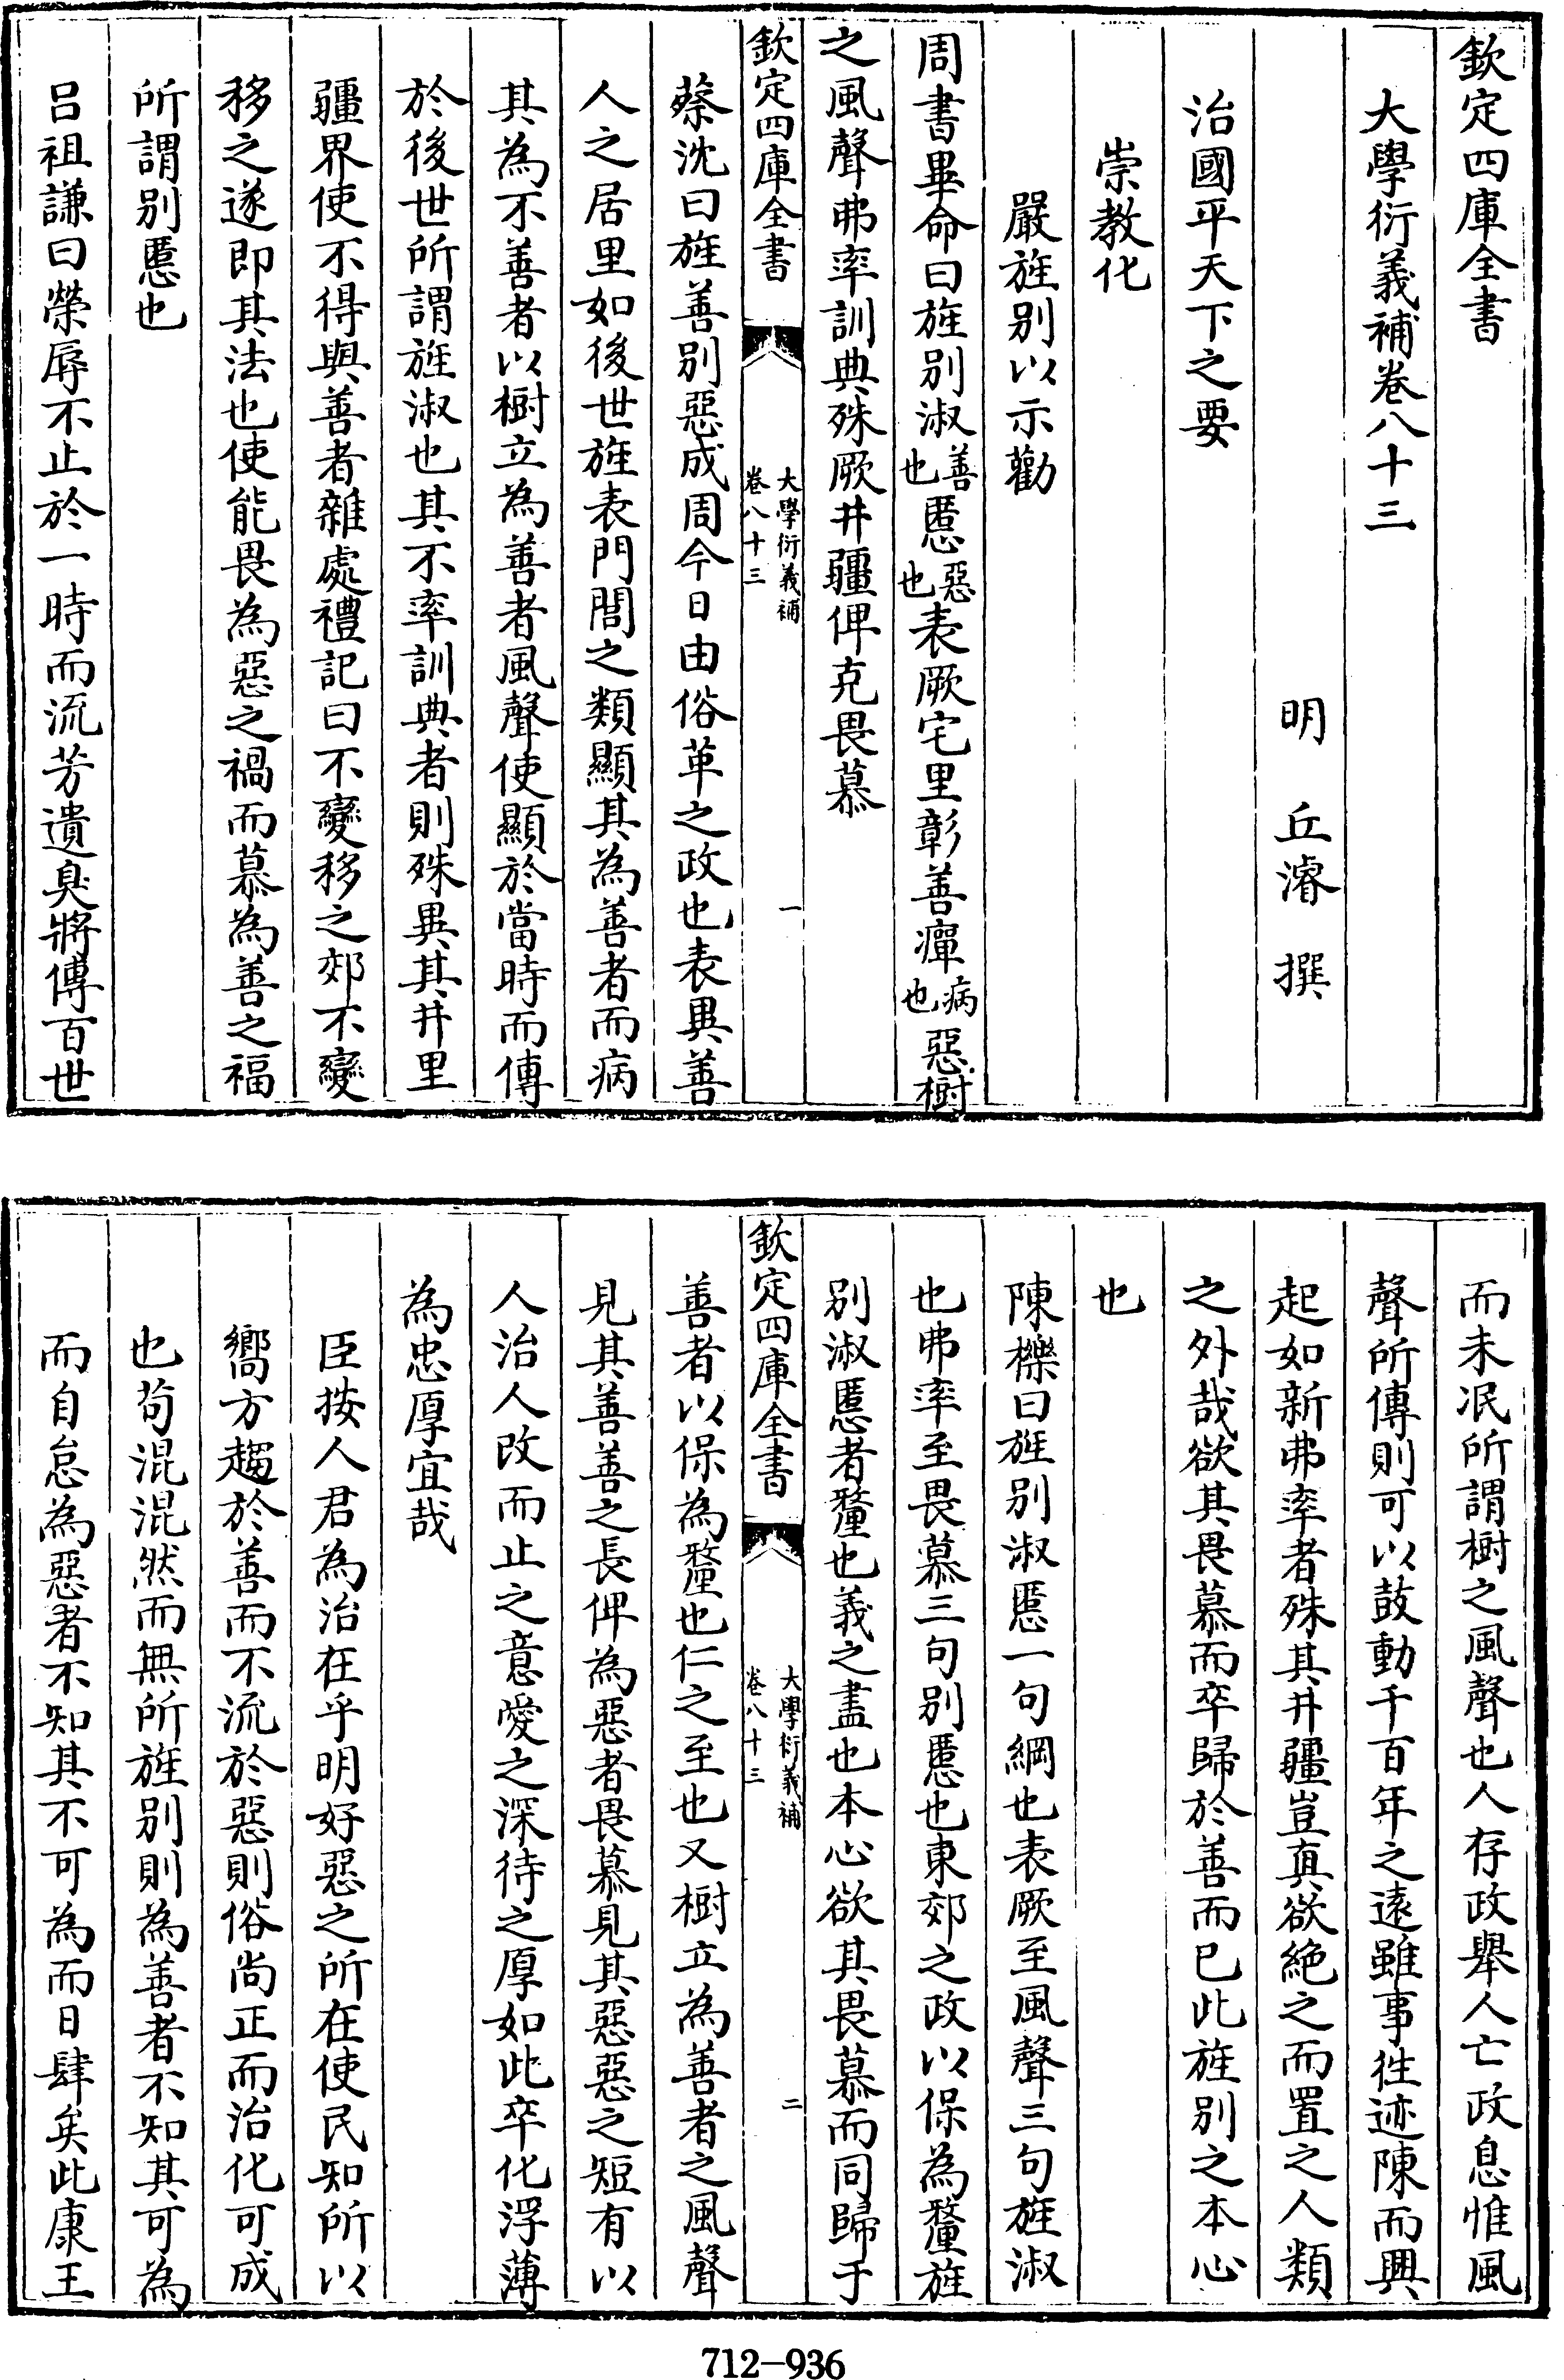 欽定四庫全書
大學衍義補卷八十三
明 丘濬 撰
治國平天下之要
崇教化
嚴旌別以示勸
周書畢命曰旌別淑善也慝惡也表厥宅里彰善癉病也惡樹
之風聲弗率訓典殊厥井疆俾克畏慕
欽定四庫全書 大學衍義補卷八十三 一
蔡沈曰旌善別惡成周今日由俗革之政也表異善
人之居里如後世旌表門閭之類顯其為善者而病
其為不善者以樹立為善者風聲使顯於當時而傳
於後世所謂旌淑也其不率訓典者則殊異其井里
疆界使不得與善者雜處禮記曰不變移之郊不變
移之遂即其法也使能畏為惡之禍而慕為善之福
所謂別慝也
呂祖謙曰榮辱不止於一時而流芳遺臭將傳百世
而未泯所謂樹之風聲也人存政舉人亡政息惟風
聲所傳則可以鼓動千百年之遠雖事往迹陳而興
起如新弗率者殊其井疆豈真欲絶之而置之人類
之外哉欲其畏慕而卒歸於善而已此旌別之本心
也
陳櫟曰旌別淑慝一句綱也表厥至風聲三句旌淑
也弗率至畏慕三句別慝也東郊之政以保為釐旌
別淑慝者釐也義之盡也本心欲其畏慕而同歸于
欽定四庫全書 大學衍義補卷八十三 二
善者以保為釐也仁之至也又樹立為善者之風聲
見其善善之長俾為惡者畏慕見其惡惡之短有以
人治人改而止之意愛之深待之厚如此卒化浮薄
為忠厚宜哉
臣按人君為治在乎明好惡之所在使民知所以
嚮方趨於善而不流於惡則俗尚正而治化可成
也苟混混然而無所旌別則為善者不知其可為
而自怠為惡者不知其不可為而日肆矣此康王
712-936